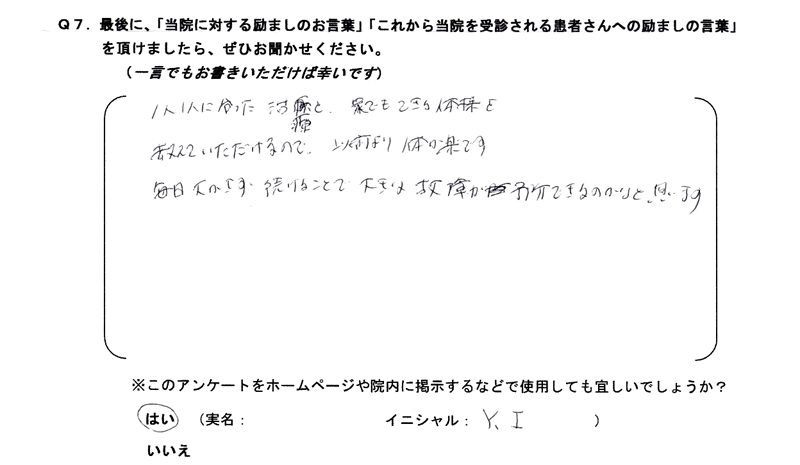 Q7. 最後に、「当院に対する励ましのお言葉」「これから当院を受診される患者さんへの励ましの言葉」
を頂けましたら、ぜひお聞かせください。
（一言でもお書きいただけば幸いです）
1人1人に合った治療と、家でもできる体操を
教えていただけるので、以前より体が楽です
毎日欠かさず続けることで大きな故障が予防できるのかなと思います
※このアンケートをホームページや院内に掲示するなどで使用しても宜しいでしょうか？
はい （実名： イニシャル： Y、I ）
いいえ